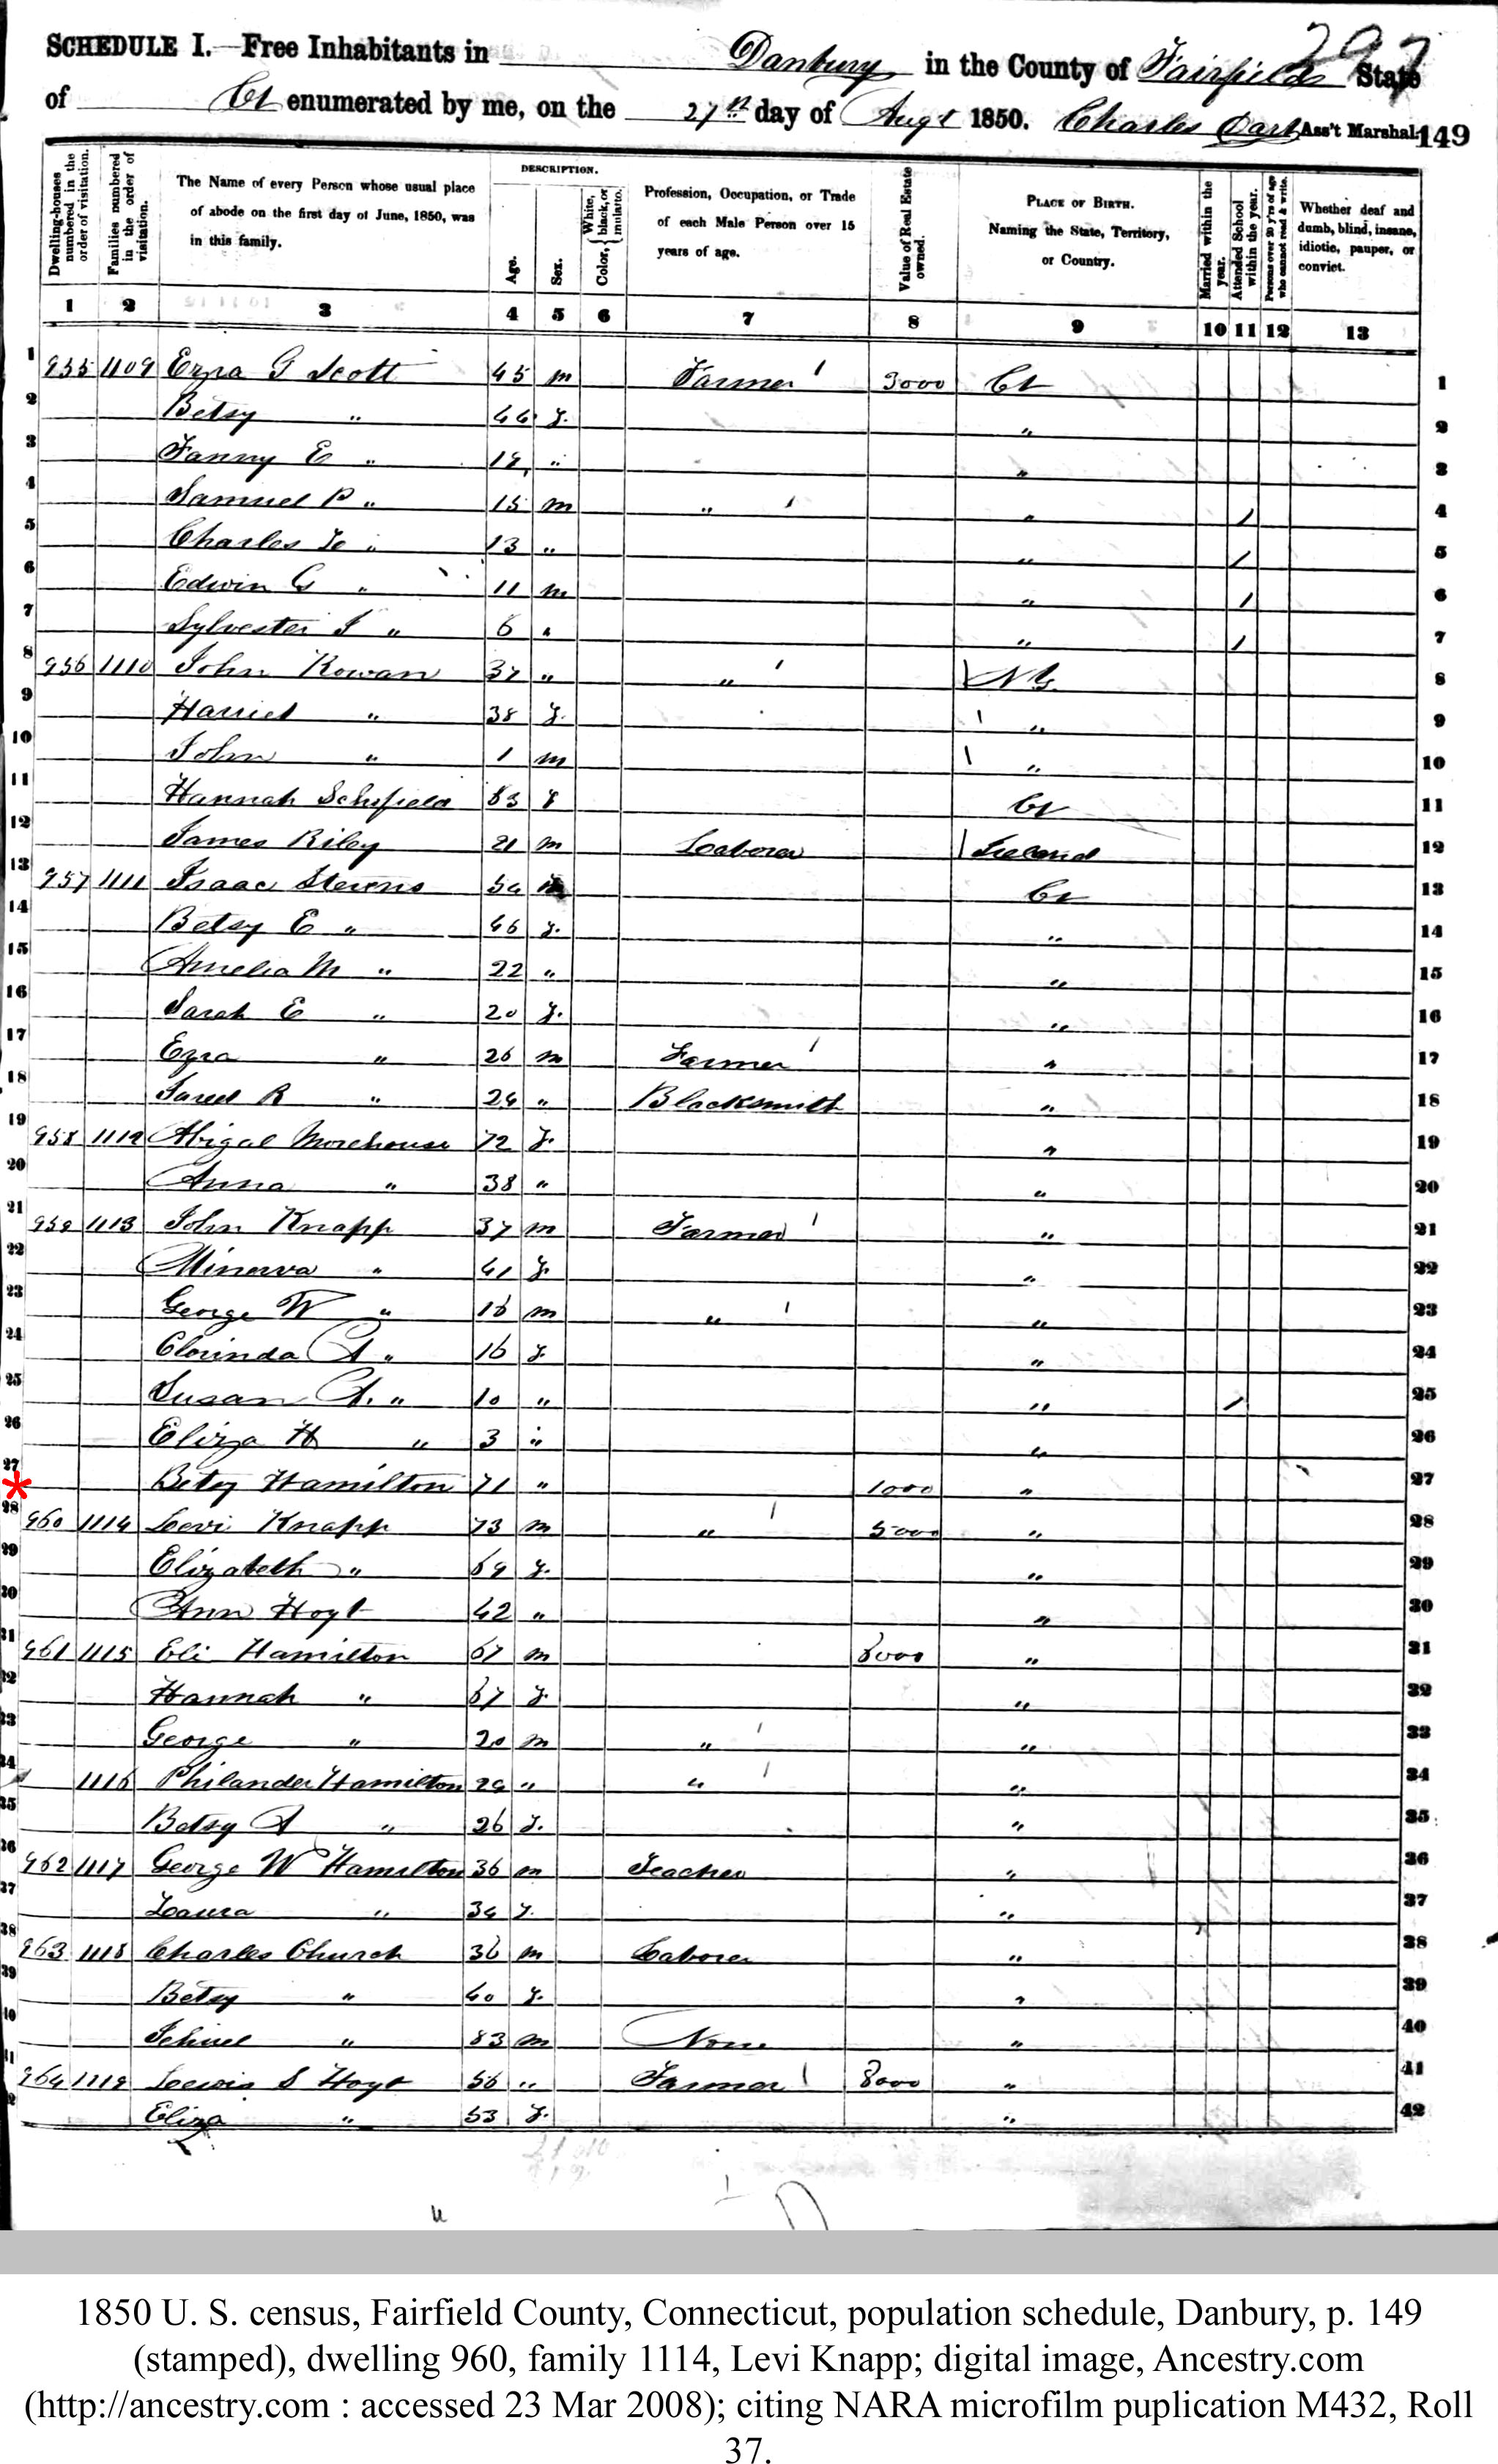 297
SCHEDULE I.—Free Inhabitants in Danbury in the County of Fairfield State
of Ct enumerated by me, on the 27th day of Augt 1850. Charles Dart Ass't Marshal. 149
Dwelling-houses numbered in the order of visitation.
Families numbered in the order of visitation.
The Name of every Person whose usual place of abode on the first day of June, 1850, was in this family.
DESCRIPTION.
Age.
Sex.
Color, { White, black, or mulatto.
Profession, Occupation, or Trade of each Male Person over 15 years of age.
Value of Real Estate owned.
PLACE OF BIRTH. Naming the State, Territory, or Country.
Married within the year.
Attended School within the year.
Persons over 20 y'rs of age who cannot read & write.
Whether deaf and dumb, blind, insane, idiotic, pauper, or convict.
1 2 3 4 5 6 7 8 9 10 11 12 13
1 955 1109 Ezra G Scott 45 m Farmer 1 3000 Ct 1
2 Betsy " 44 f. " 2
3 Fanny E " " " 3
4 Samuel P " 15 m " 1 " / 4
5 Charles " 13 " " / 5
6 Edwin G " 11 m " / 6
7 Sylvester S " 6 " " / 7
8 956 1110 John Rowan 37 " " 1 8
9 Harriet " 38 f. " 9
10 John " 1 m " 10
11 Hannah Schofield 83 f Ct 11
12 James Riley 21 m Laborer Ireland 12
13 957 1111 Isaac Stevens 54 m Ct 13
14 Betsy E " 46 f. " 14
15 Amelia M " 22 " " 15
16 Sarah E " 20 f. " 16
17 Ezra " 26 m Farmer 1 " 17
18 Jared B " 24 " Blacksmith " 18
19 958 1112 Abigal Morehouse 72 f. " 19
20 Anna " 38 " " 20
21 959 1113 John Knapp 37 m Farmer 1 " 21
22 Minerva " 41 f. " 22
23 George W " 16 m " 1 " 23
24 Clorinda A " 16 f. " 24
25 Susan A. " 10 " " / 25
26 Eliza H " 3 " " 26
27 * Betsy Hamilton 71 " 1000 " 27
28 960 1114 Levi Knapp 73 m " 1 5000 " 28
29 Elizabeth " 69 f. " 29
30 Ann Hoyt 42 " " 30
31 961 1115 Eli Hamilton 67 m 8000 " 31
32 Hannah " 67 f. " 32
33 George " 20 m " 1 " 33
34 1116 Philander Hamilton 29 " " 1 " 34
35 Betsy A " 26 f. " 35
36 962 1117 George W Hamilton 36 m Teacher " 36
37 Laura " 34 f. " 37
38 963 1118 Charles Church 36 m Laborer " 38
39 Betsy " 60 f. " 39
40 " 83 m None " 40
41 964 1119 Lewis S Hoyt 56 " Farmer 1 8000 " 41
42 Eliza " 53 f. " 42
1850 U. S. census, Fairfield County, Connecticut, population schedule, Danbury, p. 149
(stamped), dwelling 960, family 1114, Levi Knapp; digital image, Ancestry.com
(http://ancestry.com : accessed 23 Mar 2008); citing NARA microfilm puplication M432, Roll
37.